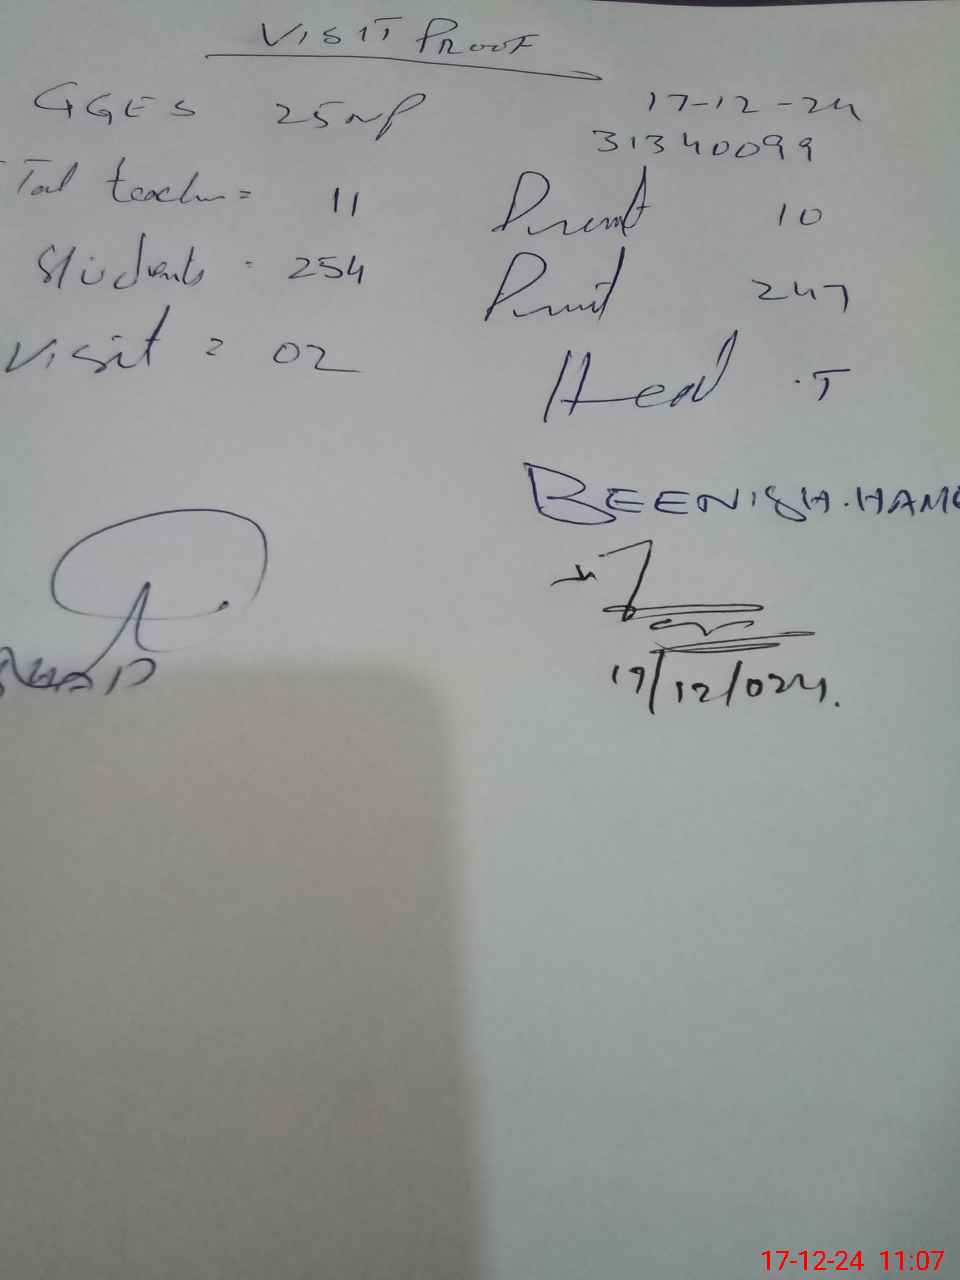 VISIT PROOF
GGES 25NP 17-12-24
31340099
Total teacher = 11 Present 10
Students = 254 Present 247
Visit = 02 Head .T
BEENISH.HAM
17/12/024.
17-12-24 11:07